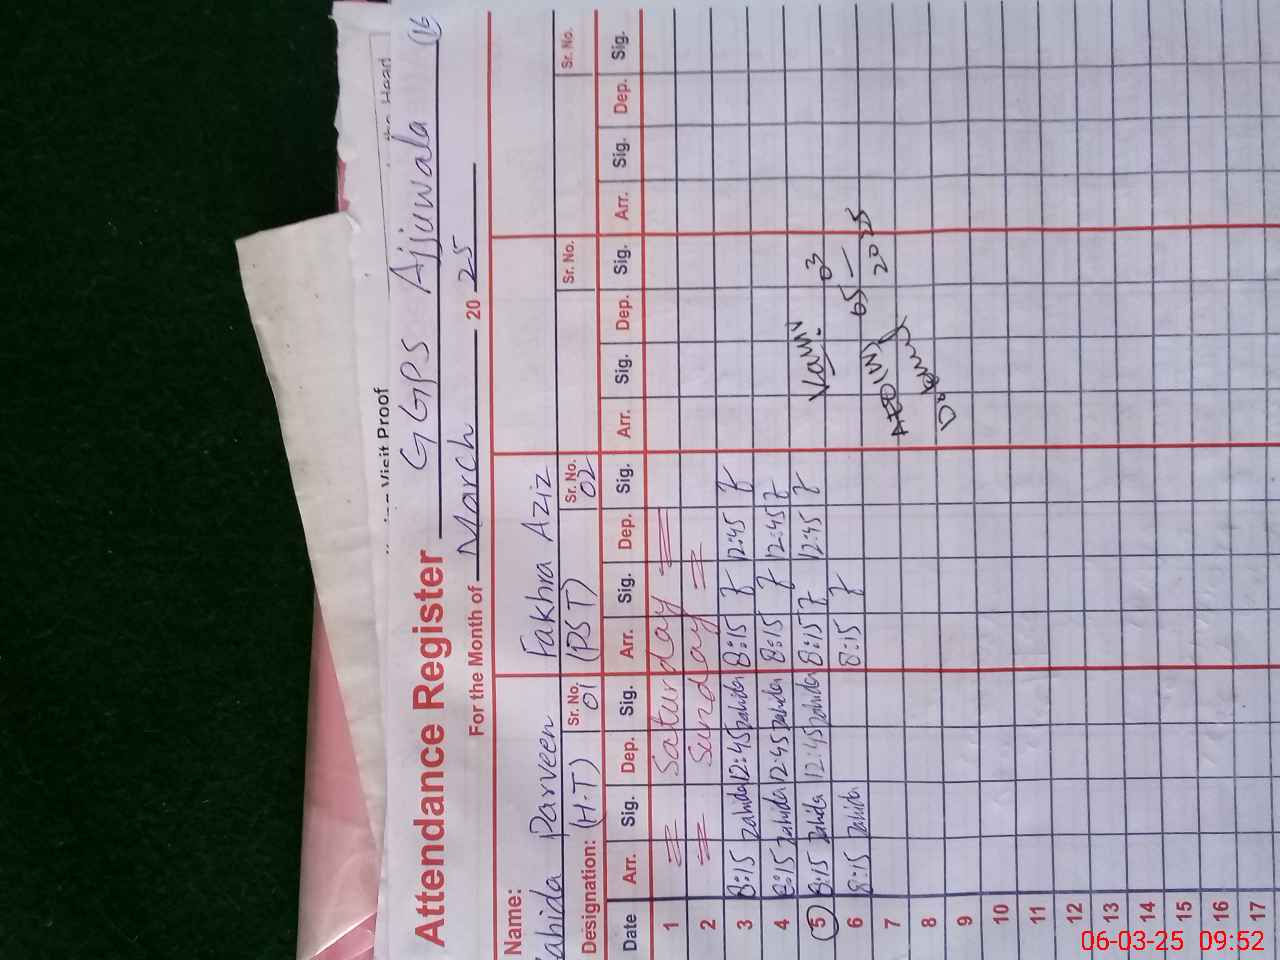 Visit Proof
the Head
Attendance Register GGPS Ajjuwala (16
For the Month of March 20 25
Name: Zahida Parveen Fakhra Aziz
Designation: (H.T) Sr. No. 01 (PST) Sr. No. 02 Sr. No. Sr. No.
Date Arr. Sig. Dep. Sig. Arr. Sig. Dep. Sig. Arr. Sig. Dep. Sig. Arr. Sig. Dep. Sig.
1 = Saturday =
2 = Sunday =
3 8:15 Zahida 12:45 Zahida 8:15 12:45
4 8:15 Zahida 12:45 Zahida 8:15 12:45
5 8:15 Zahida 12:45 Zahida 8:15 12:45
6 8:15 Zahida 8:15
7
8
9
10
11
12
13
14
15
16
17
03
05 —
2025
AEO (W)
06-03-25 09:52